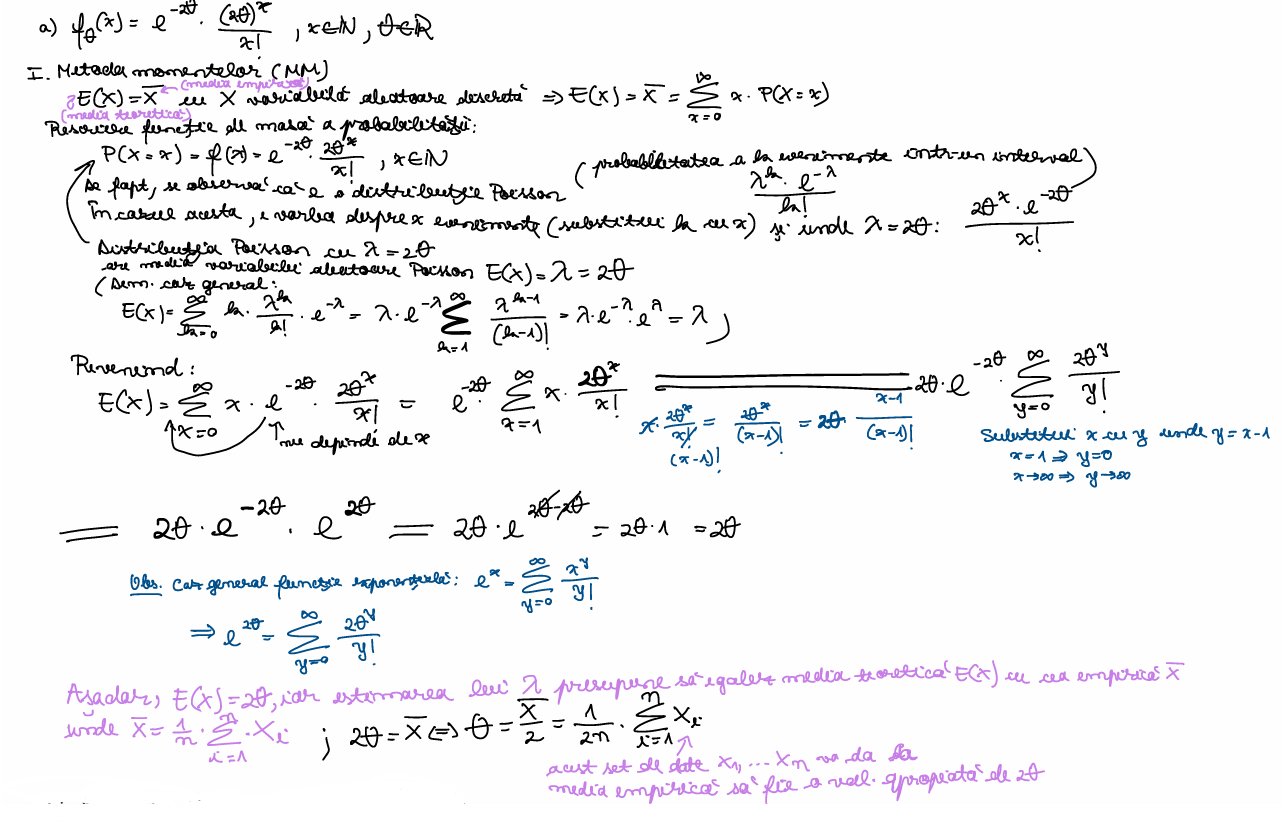 a) f_θ(x) = e^{-2θ} · (2θ)^x / x! , x∈ℕ, θ∈ℝ
I. Metoda momentelor (MM)
(media empirică)
E(X) = X̄ cu X variabilă aleatoare discretă ⇒ E(X) = X̄ = Σ_{x=0}^{∞} x · P(X=x)
(media teoretică)
Rescriere funcție de masă a probabilității:
P(X=x) = f(x) = e^{-2θ} · 2θ^x / x! , x∈ℕ
(probabilitatea a k evenimente într-un interval)
De fapt, se observă că e o distribuție Poisson
λ^k · e^{-λ} / k!
În cazul acesta, e vorba despre x evenimente (substitui k cu x) și unde λ = 2θ: 2θ^x · e^{-2θ} / x!
Distribuția Poisson cu λ = 2θ
are media variabilei aleatoare Poisson E(X) = λ = 2θ
(Dem. caz general:
E(X) = Σ_{k=0}^{∞} k · λ^k / k! · e^{-λ} = λ · e^{-λ} Σ_{k=1}^{∞} λ^{k-1} / (k-1)! = λ · e^{-λ} · e^λ = λ)
Revenind:
E(X) = Σ_{x=0}^{∞} x · e^{-2θ} · 2θ^x / x! = e^{-2θ} · Σ_{x=1}^{∞} x · 2θ^x / x! = 2θ · e^{-2θ} · Σ_{y=0}^{∞} 2θ^y / y!
nu depinde de x
x · 2θ^x / x! (x-1)! = 2θ^x / (x-1)! = 2θ · ^{x-1} / (x-1)!
Substitui x cu y unde y = x-1
x = 1 ⇒ y = 0
x→∞ ⇒ y→∞
= 2θ · e^{-2θ} · e^{2θ} = 2θ · e^{2θ-2θ} = 2θ · 1 = 2θ
Obs. Caz general funcție exponențială: e^x = Σ_{y=0}^{∞} x^y / y!
⇒ e^{2θ} = Σ_{y=0}^{∞} 2θ^y / y!
Așadar, E(X) = 2θ, iar estimarea lui λ presupune să egalez media teoretică E(X) cu cea empirică X̄
unde X̄ = 1/n · Σ_{i=1}^{n} · X_i ; 2θ = X̄ ⇔ θ = X̄/2 = 1/2n · Σ_{i=1}^{n} X_i
acest set de date X_1, ... X_n va da la
media empirică să fie o val. apropiată de 2θ